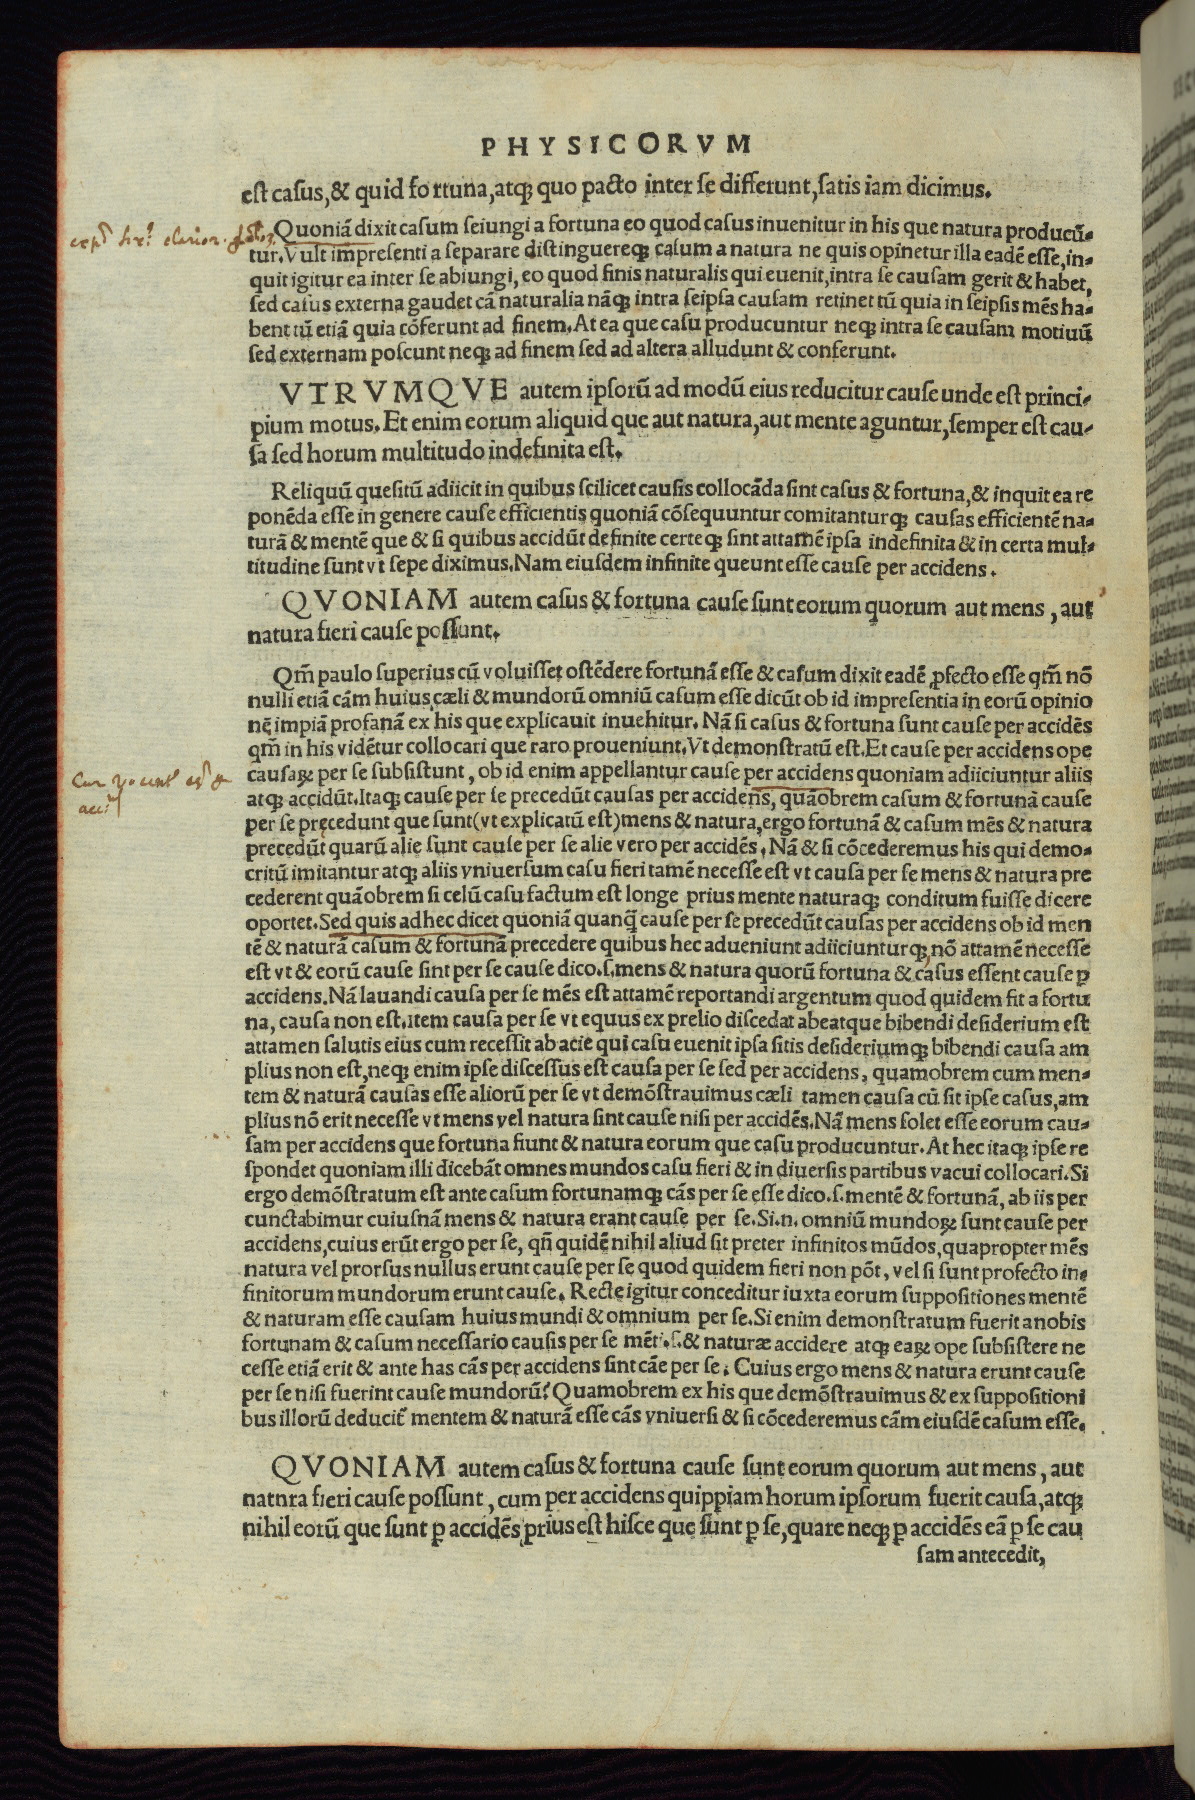 PHYSICORVM
est casus,& quid fortuna,atq; quo pacto inter se differunt,satis iam dicimus.
Quoniā dixit casum seiungi a fortuna eo quod casus inuenitur in his que natura producū-
tur.Vult impresenti a separare distinguereq; casum a natura ne quis opinetur illa eadē esse,in-
quit igitur ea inter se abiungi, eo quod finis naturalis qui euenit,intra se causam gerit & habet,
sed casus externa gaudet cā naturalia nāq; intra seipsa causam retinet tū quia in seipsis mēs ha-
bent tū etiā quia cōferunt ad finem.At ea que casu producuntur neq; intra se causam motiuū
sed externam poscunt neq; ad finem sed ad altera alludunt & conferunt.
VTRVMQVE autem ipsorū ad modū eius reducitur cause unde est princi-
pium motus.Et enim eorum aliquid que aut natura,aut mente aguntur,semper est cau-
sa sed horum multitudo indefinita est.
Reliquū quesitū adiicit in quibus scilicet causis collocāda sint casus & fortuna,& inquit ea re
ponēda esse in genere cause efficientis quoniā cōsequuntur comitanturq; causas efficientē na-
turā & mentē que & si quibus accidūt definite certeq; sint attamē ipsa indefinita & in certa mul-
titudine sunt vt sepe diximus.Nam eiusdem infinite queunt esse cause per accidens.
QVONIAM autem casus & fortuna cause sunt eorum quorum aut mens, aut
natura fieri cause possunt.
Qm̄ paulo superius cū voluisset ostēdere fortunā esse & casum dixit eadē ꝓfecto esse qm̄ nō
nulli etiā cām huius cæli & mundorū omniū casum esse dicūt ob id impresentia in eorū opinio
nē impiā profanā ex his que explicauit inuehitur. Nā si casus & fortuna sunt cause per accidēs
qm̄ in his vidētur collocari que raro proueniunt.Vt demonstratū est.Et cause per accidens ope
causaꝝ per se subsistunt, ob id enim appellantur cause per accidens quoniam adiiciuntur aliis
atq; accidūt.Itaq; cause per se precedūt causas per accidens, quāobrem casum & fortunā cause
per se pręcedunt que sunt(vt explicatū est)mens & natura,ergo fortunā & casum mēs & natura
precedūt quarū alie sunt cause per se alie vero per accidēs. Nā & si cōcederemus his qui demo-
critū imitantur atq; aliis vniuersum casu fieri tamē necesse est vt causa per se mens & natura pre
cederent quāobrem si celū casu factum est longe prius mente naturaq; conditum fuisse dicere
oportet.Sed quis adhec dicet quoniā quanq̄ cause per se precedūt causas per accidens ob id men
tē & naturā casum & fortunā precedere quibus hec adueniunt adiiciunturq; nō attamē necesse
est vt & eorū cause sint per se cause dico.s.mens & natura quorū fortuna & casus essent cause ꝑ
accidens.Nā lauandi causa per se mēs est attamē reportandi argentum quod quidem fit a fortu
na, causa non est.item causa per se vt equus ex prelio discedat abeatque bibendi desiderium est
attamen salutis eius cum recessit ab acie qui casu euenit ipsa sitis desideriumq; bibendi causa am
plius non est,neq; enim ipse discessus est causa per se sed per accidens, quamobrem cum men-
tem & naturā causas esse aliorū per se vt demōstrauimus cæli tamen causa cū sit ipse casus,am
plius nō erit necesse vt mens vel natura sint cause nisi per accidēs.Nā mens solet esse eorum cau-
sam per accidens que fortuna fiunt & natura eorum que casu producuntur. At hec itaq; ipse re
spondet quoniam illi dicebāt omnes mundos casu fieri & in diuersis partibus vacui collocari.Si
ergo demōstratum est ante casum fortunamq; cās per se esse dico.s.mentē & fortunā, ab iis per
cunctabimur cuiusnā mens & natura erant cause per se.Si.n. omniū mundoꝝ sunt cause per
accidens,cuius erūt ergo per se, qn̄ quidē nihil aliud sit preter infinitos mūdos,quapropter mēs
natura vel prorsus nullus erunt cause per se quod quidem fieri non pōt, vel si sunt profecto in-
finitorum mundorum erunt cause. Recte igitur conceditur iuxta eorum suppositiones mentē
& naturam esse causam huius mundi & omnium per se.Si enim demonstratum fuerit anobis
fortunam & casum necessario causis per se mēti.s.& naturæ accidere atq; eaꝝ ope subsistere ne
cesse etiā erit & ante has cās per accidens sint cāe per se. Cuius ergo mens & natura erunt cause
per se nisi fuerint cause mundorū? Quamobrem ex his que demōstrauimus & ex suppositioni
bus illorū deducit̄ mentem & naturā esse cās vniuersi & si cōcederemus cām eiusdē casum esse.
QVONIAM autem casus & fortuna cause sunt eorum quorum aut mens, aut
natnra fieri cause possunt, cum per accidens quippiam horum ipsorum fuerit causa,atq;
nihil eorū que sunt ꝑ accidēs prius est hisce que sunt ꝑ se,quare neq; ꝑ accidēs eā ꝑ se cau
sam antecedit,